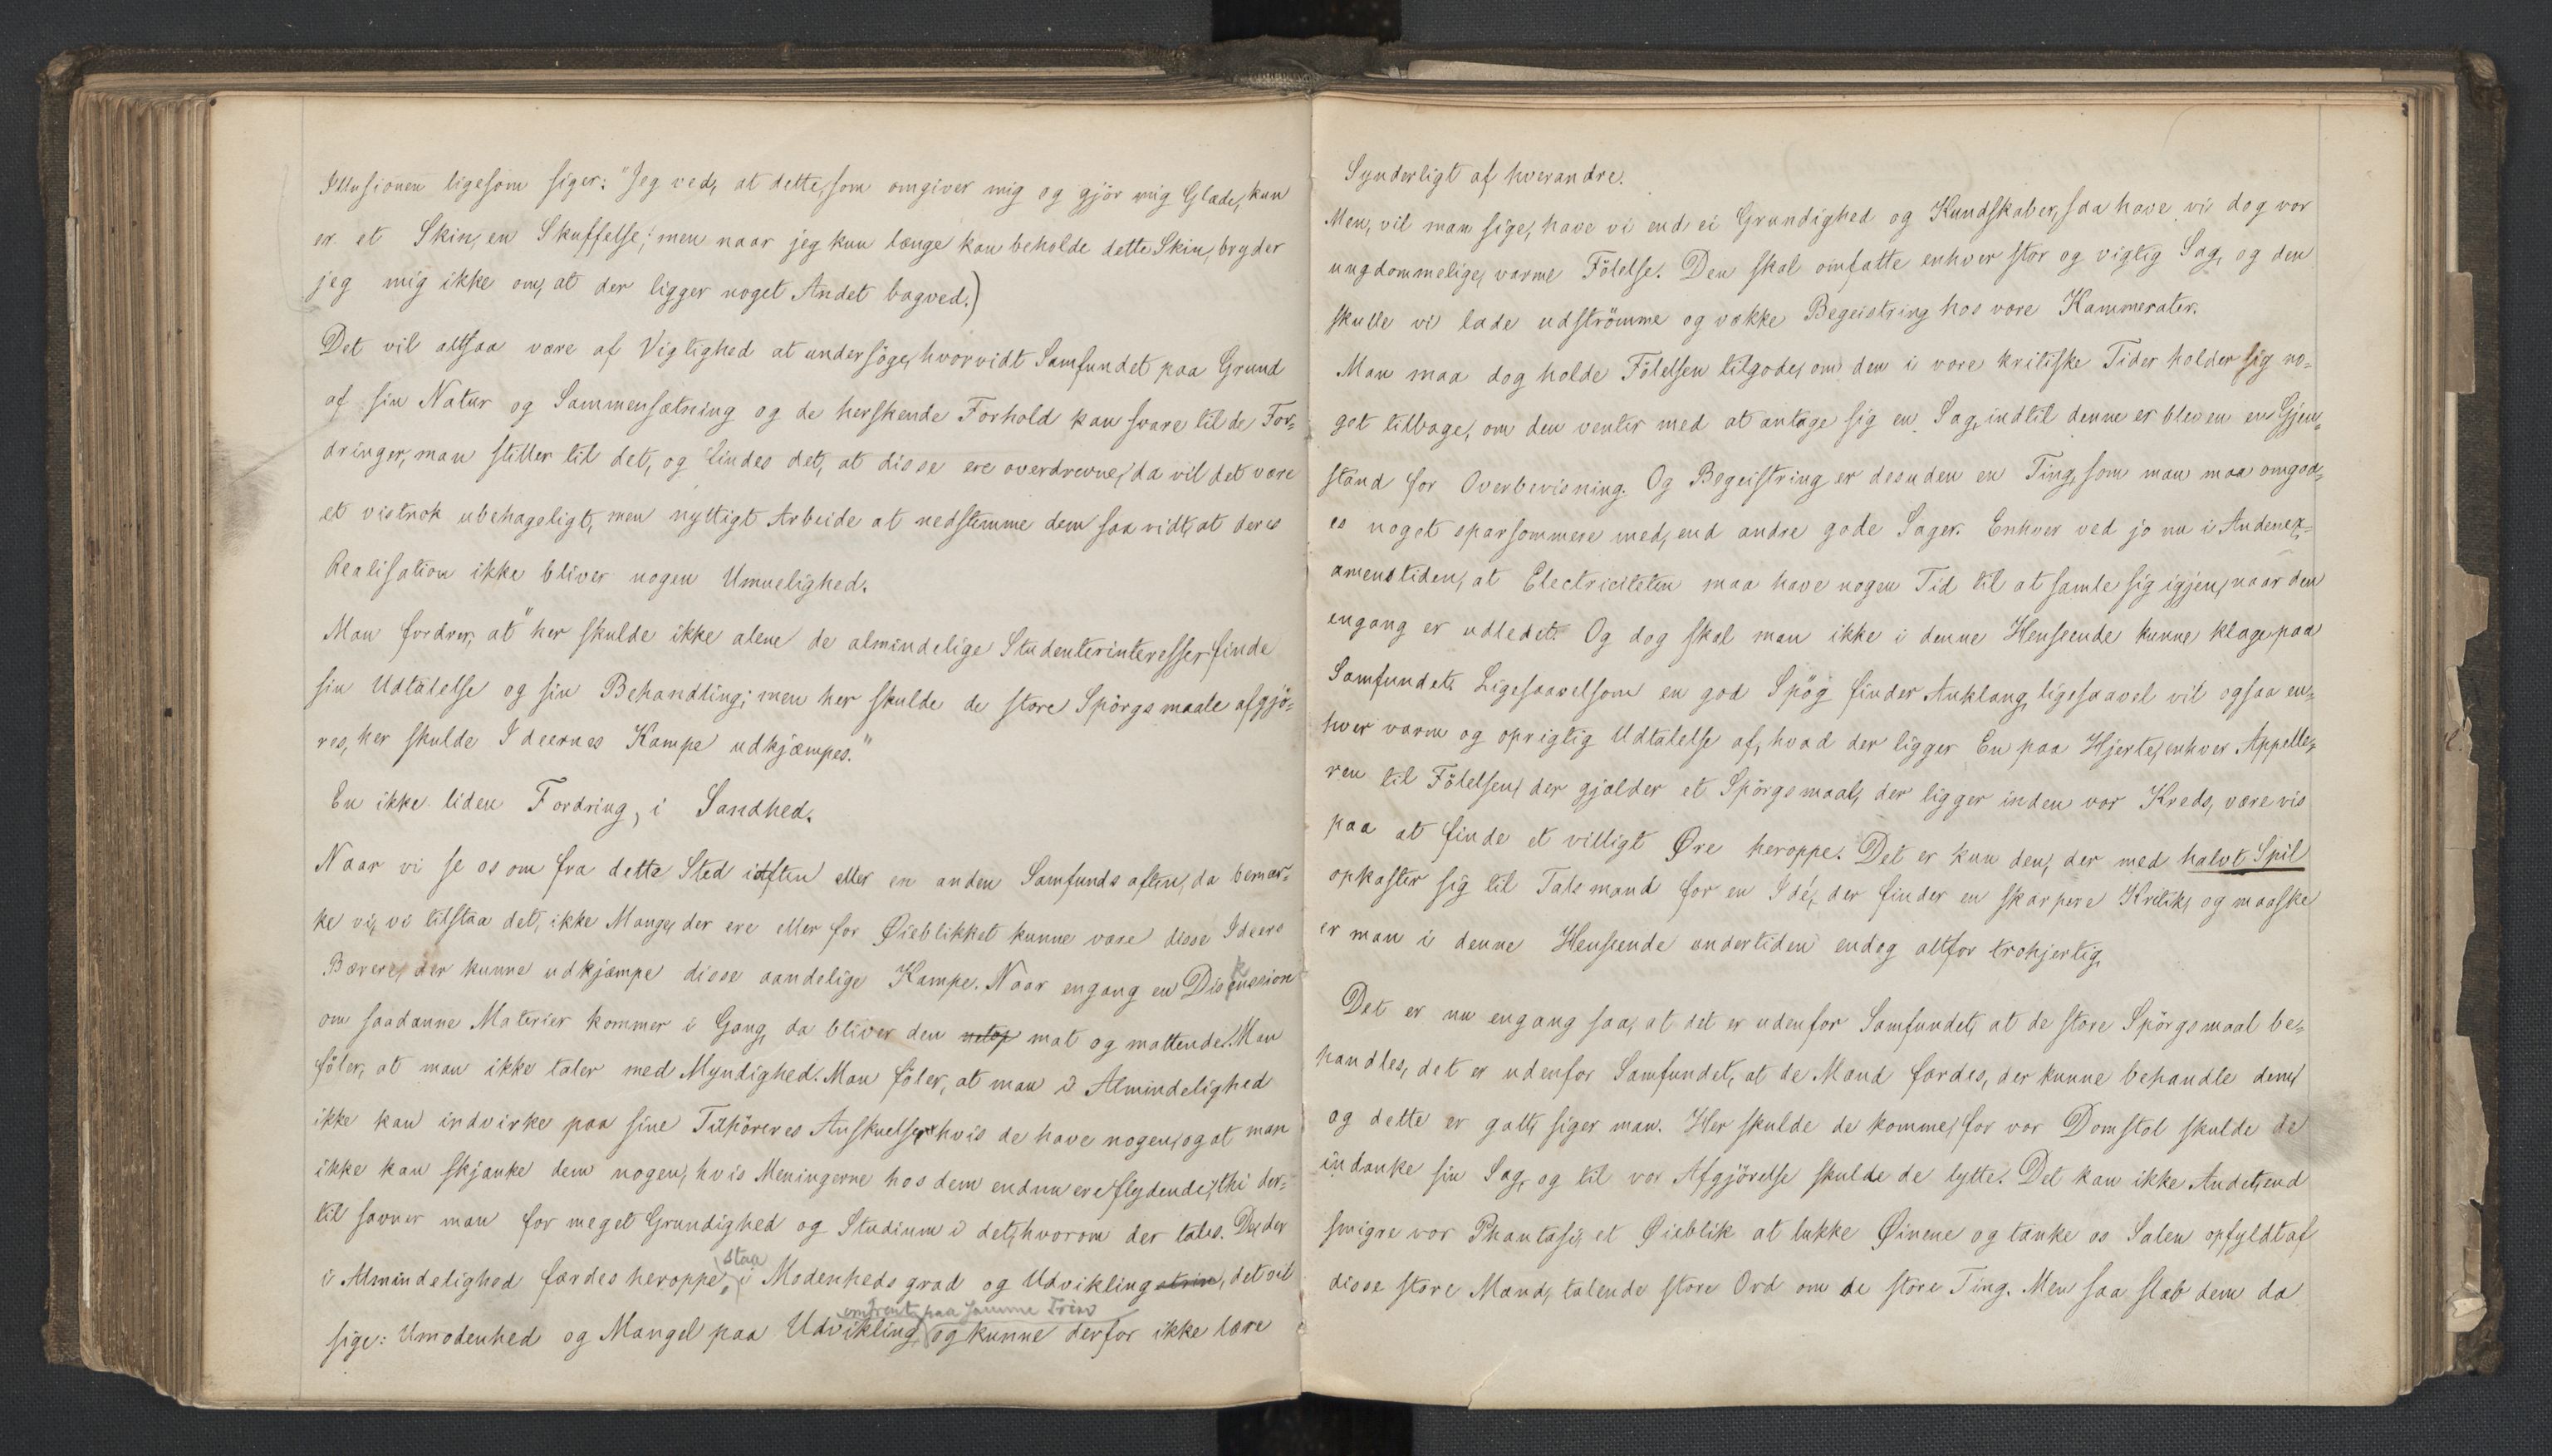 Illusionen ligesom siger: "Jeg ved, at dette, som omgiver mig og gjör mig Glade, kun
er et Skin, en Skuffelse; men naar jeg kun længe kan beholde dette Skin, bryder
jeg mig ikke om, at der ligger noget Andet bagved.)
Det vil altsaa være af Vigtighed at undersöge, hvorvidt Samfundet paa Grund
af sin Natur og Sammensætning og de herskende Forhold kan svare til de For-
dringer, man stiller til det, og findes det, at disse ere overdrevne, da vil det være
et vistnok ubehageligt, men nyttigt Arbeide at nedstemme dem saa vidt, at deres
Realisation ikke bliver nogen Umuelighed.
Man fordrer, at "her skulde ikke alene de almindelige Studenterinteresser finde
sin Udtalelse og sin Behandling; men her skulde de store Spörgsmaale afgjö-
res, her skulde Ideernes Kampe udkjæmpes."
En ikke liden Fordring, i Sandhed.
Naar vi se os om fra dette Sted iaften eller en anden Samfundsaften, da bemær-
ke vi, vi tilstaa det, ikke Mange, der ere eller for Øieblikket kunne være disse Ideers
Bærere, der kunne udkjæmpe disse aandelige Kampe. Naar engang en Diskussion
om saadanne Materier kommer i Gang, da bliver den netop mat og mattende. Man
föler, at man ikke taler med Myndighed. Man föler, at man i Almindelighed
ikke kan indvirke paa sine Tilhöreres Anskuelser, hvis de have nogen, og at man
ikke kan skjænke dem nogen, hvis Meningerne hos dem endnu ere flydende, thi der-
til savner man for meget Grundighed og Studium i det, hvorom der tales. De, der
staa
i Almindelighed færdes heroppe, i Modenhedsgrad og Udviklingstrin, det vil
omtrent paa samme Trin
sige: Umodenhed og Mangel paa Udvikling, og kunne derfor ikke lære
Synderligt af hverandre.
Men, vil man sige, have vi end ei Grundighed og Kundskaber, saa have vi dog vor
ungdommelige, varme Fölelse. Den skal omfatte enhver stor og vigtig Sag, og den
skulle vi lade udströmme og vække Begeistring hos vore Kammerater.
Man maa dog holde Fölelsen tilgode, om den i vore kritiske Tider holder sig no-
get tilbage, om den venter med at antage sig en Sag, indtil denne er bleven en Gjen-
stand for Overbevisning. Og Begeistring er desuden en Ting, som man maa omgaa-
es noget sparsommere med, end andre gode Sager. Enhver ved jo nu i Andenex-
amenstiden, at Electriciteten maa have nogen Tid til at samle sig igjen, naar den
engang er udledet. Og dog skal man ikke i denne Henseende kunne klage paa
Samfundet. Ligesaavelsom en god Spög finder Anklang, ligesaavel vil ogsaa en-
hver varm og oprigtig Udtalelse af, hvad der ligger En paa Hjerte, enhver Appelle-
ren til Fölelsen, der gjælder et Spörgsmaal, der ligger inden vor Kreds, være vis
paa at finde et villigt Øre heroppe. Det er kun den, der med halvt Spil
opkaster sig til Talsmand for en Idé, der finder en skarpere Kritik, og maaske
er man i denne Henseende undertiden endog altfor trohjertig.
Det er nu engang saa, at det er udenfor Samfundet, at de store Spörgsmaal be-
handles, det er udenfor Samfundet, at de Mænd færdes, der kunne behandle dem,
og dette er galt, siger man. Her skulde de komme, for vor Domstol skulde de
indanke sin Sag, og til vor Afgjörelse skulde de lytte. Det kan ikke Andet, end
smigre vor Phantasi, et Øieblik at lukke Øinene og tænke os Salen opfyldt af
disse store Mænd, talende store Ord om de store Ting. Men saa slab dem da